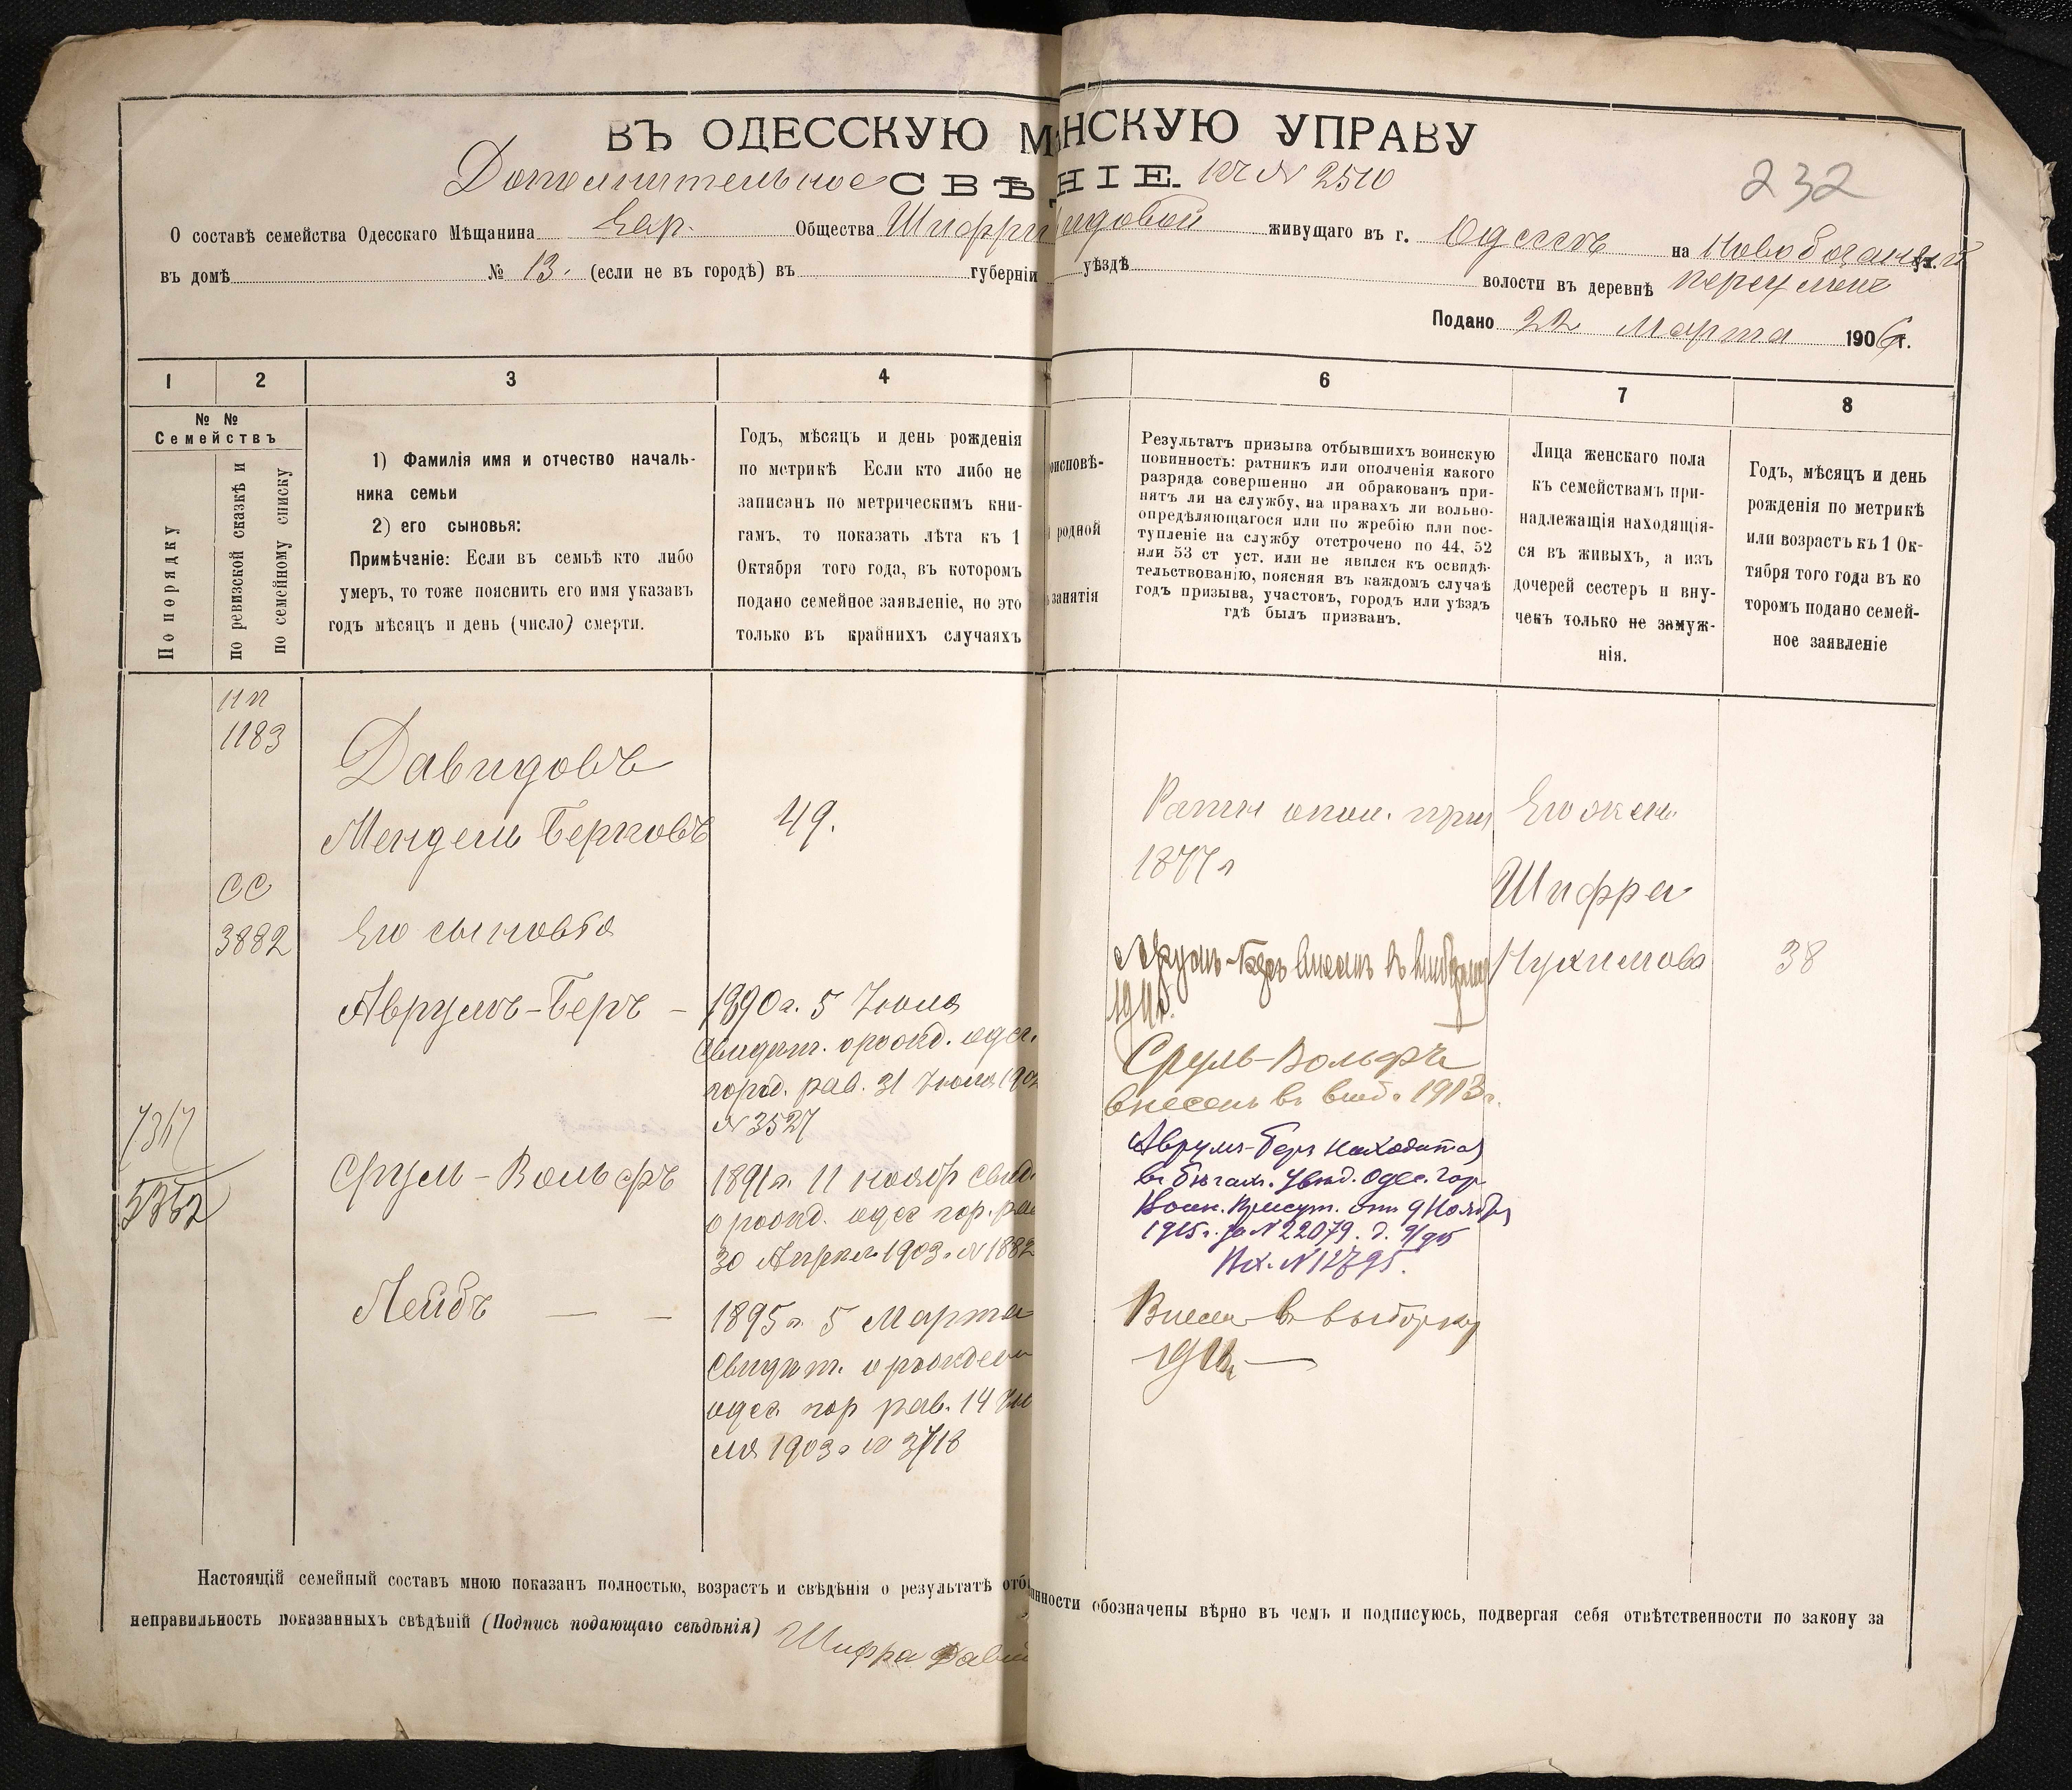 ВЪ ОДЕССКУЮ М НСКУЮ УПРАВУ
Дополнительное СВѢ НІЕ. къ № 2510
232
О составѣ семейства Одесскаго Мѣщанина Евр. Общества Шифры идовой живущаго въ г. Одессѣ на
въ домѣ № 13. (если не въ городѣ) въ губерніи уѣздѣ волости въ деревнѣ
Подано 22 Марта 1906 г.
1 2 3 4 6 7 8
№ №
Семействъ
По порядку
по ревизской сказкѣ и
по семейному списку
1) Фамилія имя и отчество началь-
ника семьи
2) его сыновья:
Примѣчаніе: Если въ семьѣ кто либо
умеръ, то тоже пояснить его имя указавъ
годъ мѣсяцъ и день (число) смерти.
Годъ, мѣсяцъ и день рожденія
по метрикѣ Если кто либо не
записанъ по метрическимъ кни-
гамъ, то показать лѣта къ 1
Октября того года, въ которомъ
подано семейное заявленіе, но это
только въ крайнихъ случаяхъ
оисповѣ-
родной
занятія
Результатъ призыва отбывшихъ воинскую
повинность: ратникъ или ополченія какого
разряда совершенно ли обракованъ при-
нятъ ли на службу, на правахъ ли вольно-
опредѣляющагося или по жребію или пос-
тупленіе на службу отстрочено по 44, 52
или 53 ст уст. или не явился къ освидѣ-
тельствованію, поясняя въ каждомъ случаѣ
годъ призыва, участокъ, городъ или уѣздъ
гдѣ былъ призванъ.
Лица женскаго пола
къ семействамъ при-
надлежащія находящія-
ся въ живыхъ, а изъ
дочерей сестеръ и вну-
чекъ только не замуж-
нія.
Годъ, мѣсяцъ и день
рожденія по метрикѣ
или возрастъ къ 1 Ок-
тября того года въ ко
торомъ подано семей-
ное заявленіе
1183
Давидовъ
Мендель Берковъ
49.
СС
3882
Его сыновья
Аврумъ-Беръ —
1890 г. 5 Июля
Свидѣт. о рожд. одес.
город. рав. 31 Июля
№ 3527
7367
5352
Сруль-Вольфъ
1891 г. 11 ноябр свид.
о рожд. одес гор. ра
30 Апрѣл 1903 г № 1882
Лейбъ — —
1895 г. 5 Марта
Свидѣт. о рожден
одес. гор рав. 14 Ию
ля 1903 г № 3718
Ратн опол. при
1877 г
Его жена
Шифра
Нухимова
38
Аврумъ-Беръ внесенъ въ
Сруль-Вольфъ
внесенъ въ выб. 1913 г.
Аврумъ-Беръ находится
въ бѣгахъ. Увѣд. Одес. Гор.
Воин. Присут. отъ 9 Ноября
1915 г. за № 22079. д. 9/915
Вх. № 12795.
Внесен въ выборку
Настоящій семейный составъ мною показанъ полностью, возрастъ и свѣдѣнія о результатѣ отб нности обозначены вѣрно въ чемъ и подписуюсь, подвергая себя отвѣтственности по закону за
неправильность показанныхъ свѣдѣній (Подпись подающаго свѣдѣнія) Шифра Дави